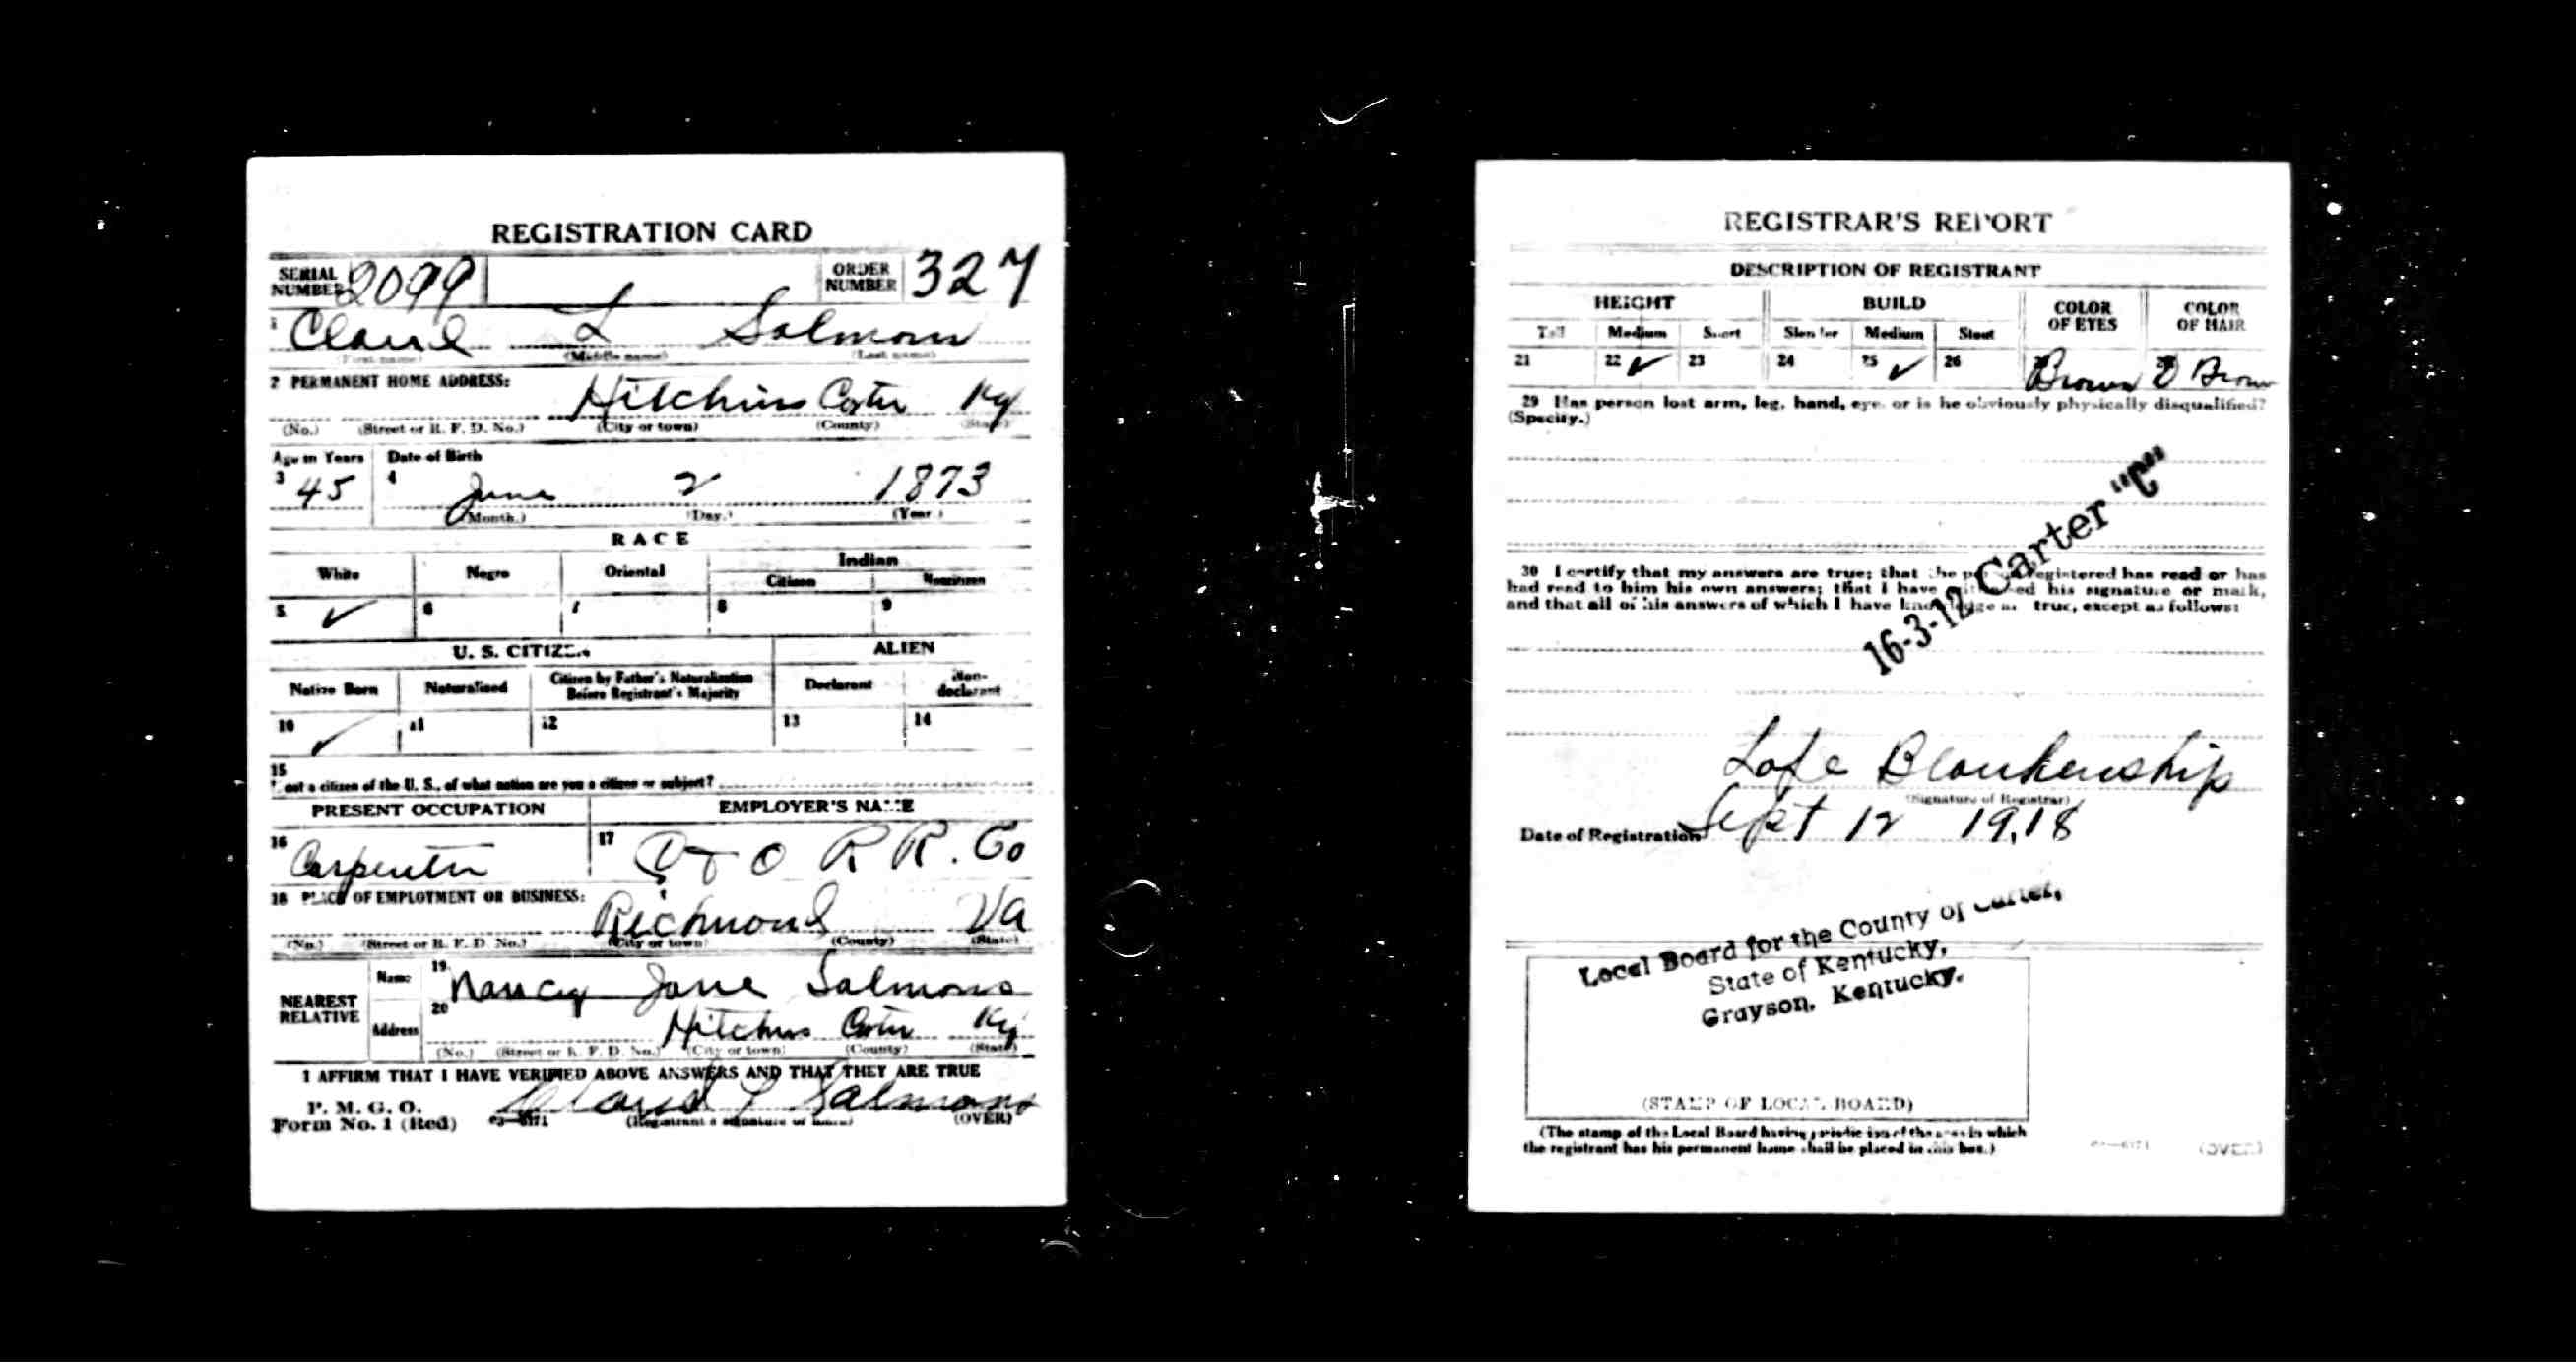 REGISTRATION CARD
SERIAL NUMBER 2099 ORDER NUMBER 327
1 Claud L Salmons
(First name) (Middle name) (Last name)
2 PERMANENT HOME ADDRESS: Hitchins Carter Ky
(No.) (Street or R. F. D. No.) (City or town) (County) (State)
Age in Years Date of Birth
3 45 4 June 2 1873
(Month.) (Day.) (Year.)
RACE
White Negro Oriental Indian
Citizen Noncitizen
5 ✓ 6 7 8 9
U. S. CITIZEN ALIEN
Native Born Naturalized Citizen by Father's Naturalization Before Registrant's Majority Declarant Non-declarant
10 ✓ 11 12 13 14
15
If not a citizen of the U. S., of what nation are you a citizen or subject?
PRESENT OCCUPATION EMPLOYER'S NAME
16 Carpenter 17 C & O R R. Co
18 PLACE OF EMPLOYMENT OR BUSINESS: Richmond Va
(No.) (Street or R. F. D. No.) (City or town) (County) (State)
NEAREST RELATIVE Name 19 Nancy Jane Salmons
Address 20 Hitchins Carter Ky
(No.) (Street or R. F. D. No.) (City or town) (County) (State)
I AFFIRM THAT I HAVE VERIFIED ABOVE ANSWERS AND THAT THEY ARE TRUE
P. M. G. O.
Form No. 1 (Red) 03—6171 Claud L Salmons
(Registrant's signature or mark) (OVER)
REGISTRAR'S REPORT
DESCRIPTION OF REGISTRANT
HEIGHT BUILD COLOR OF EYES COLOR OF HAIR
Tall Medium Short Slender Medium Stout
21 22 ✓ 23 24 25 ✓ 26 27 Brown 28 D Brown
29 Has person lost arm, leg, hand, eye, or is he obviously physically disqualified?
(Specify.)
30 I certify that my answers are true; that the person registered has read or has
had read to him his own answers; that I have witnessed his signature or mark,
and that all of his answers of which I have knowledge are true, except as follows:
16-3-12 Carter "C"
Lafe Blankenship
(Signature of Registrar)
Date of Registration Sept 12 1918
Local Board for the County of Carter,
State of Kentucky,
Grayson, Kentucky.
(STAMP OF LOCAL BOARD)
(The stamp of the Local Board having jurisdiction of the area in which
the registrant has his permanent home shall be placed in this box.)
03—6171 (OVER)